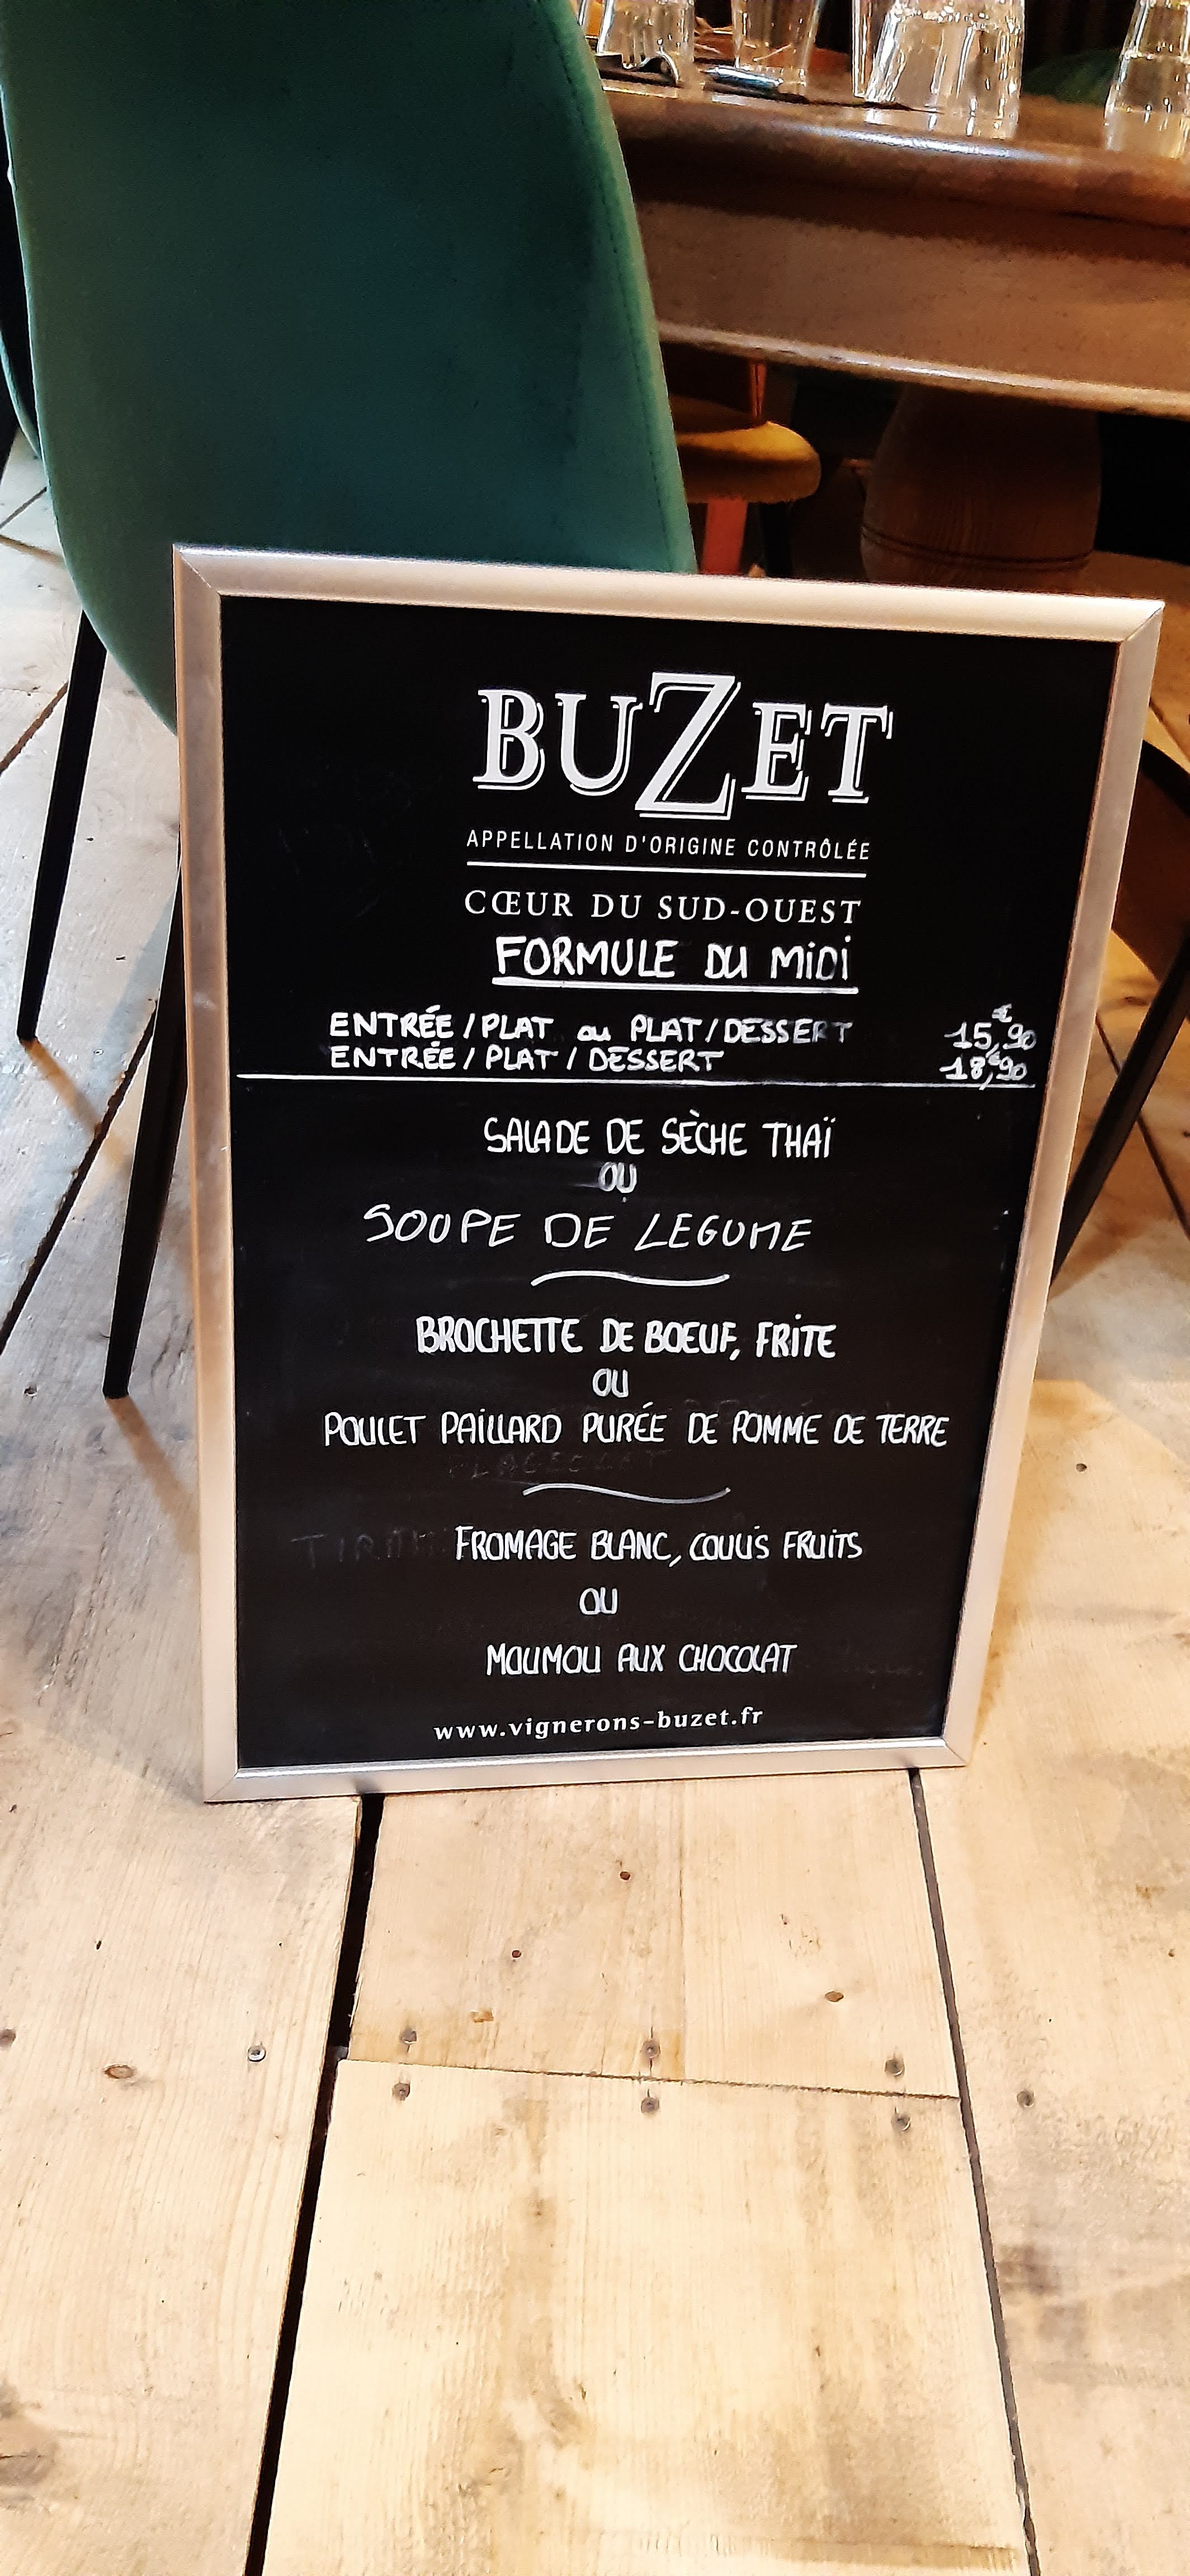 BUZET
APPELLATION D'ORIGINE CONTRÔLÉE
CŒUR DU SUD-OUEST
FORMULE DU MIDI
ENTRÉE/PLAT ou PLAT/DESSERT 15,€90
ENTRÉE/PLAT/DESSERT 18,€90
SALADE DE SÈCHE THAÏ
OU
SOUPE DE LEGUME
BROCHETTE DE BOEUF, FRITE
OU
POULET PAILLARD PURÉE DE POMME DE TERRE
FROMAGE BLANC, COULIS FRUITS
OU
MOUMOU AUX CHOCOLAT
www.vignerons-buzet.fr